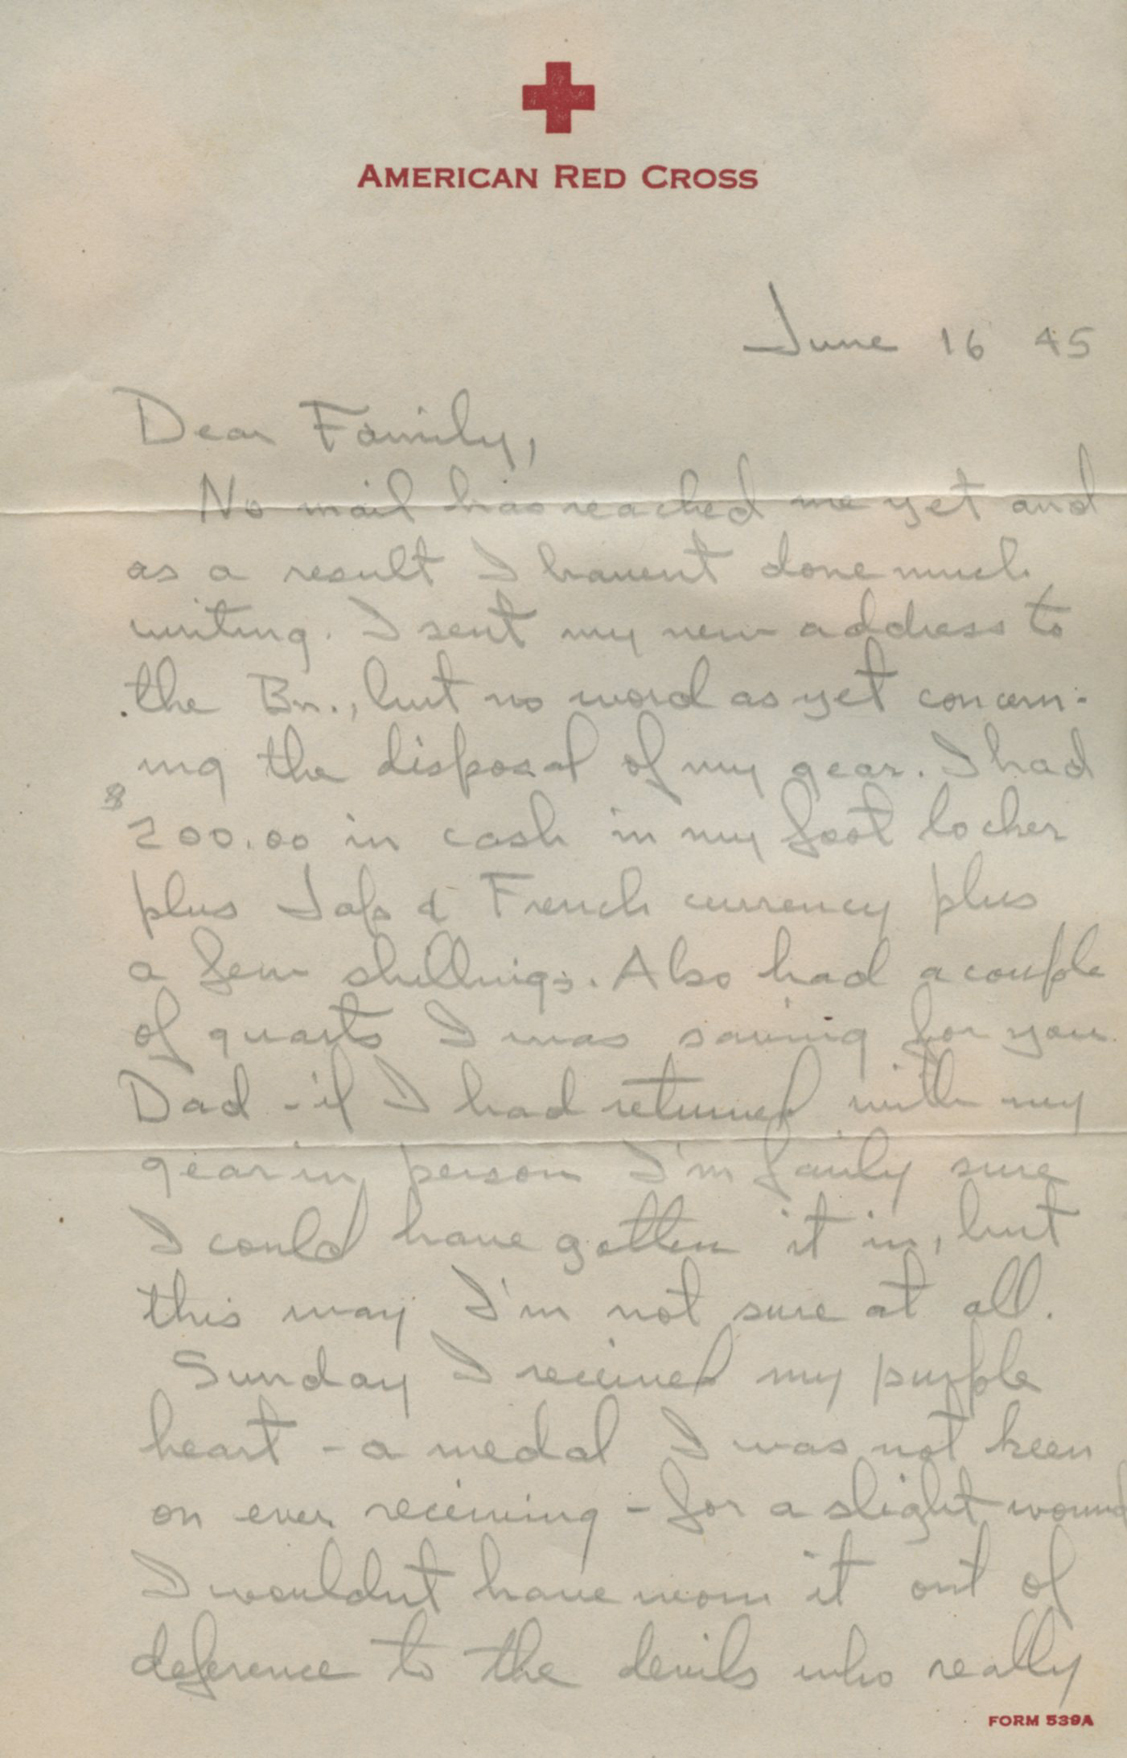 AMERICAN RED CROSS
June 16 45
Dear Family,
No mail has reached me yet and
as a result I havent done much
writing. I sent my new address to
the Bn., but no word as yet concern-
ing the disposal of my gear. I had
$200.00 in cash in my foot locker
plus Jap & French currency plus
a few shillings. Also had a couple
of quarts I was saving for you
Dad - if I had returned with my
gear in person I'm fairly sure
I could have gotten it in, but
this way I'm not sure at all.
Sunday I received my purple
heart - a medal I was not keen
on ever receiving - for a slight wound
I wouldnt have worn it out of
deference to the devils who really
FORM 539A